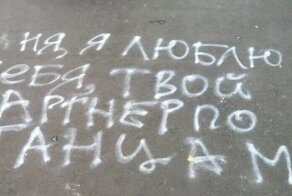 НЯ, Я ЛЮБЛЮ
ЕБЯ, ТВОЙ
АРТНЕР ПО
АНЦАМ